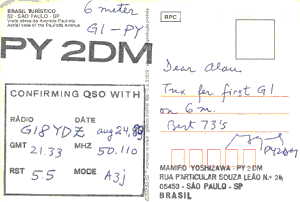 BRASIL TURÍSTICO
52 - SÃO PAULO - SP
Vista aérea da Avenida Paulista
Aerial view of the Paulista Avenue
6 meter
G1 - PY
PY 2DM
CONFIRMING QSO WITH
RÁDIO DATE
GI8YDZ aug 24, 89
GMT MHZ
21.33 50.110
RST MODE
5.5 A3j
RPC
Dear Alan
Tnx for first GI
on 6 m.
Best 73's
PY2DM
MAMIRO YOSHIZAWA - PY2DM
RUA PARTICULAR SOUZA LEÃO N.º 26
05453 - SÃO PAULO - SP
BRASIL